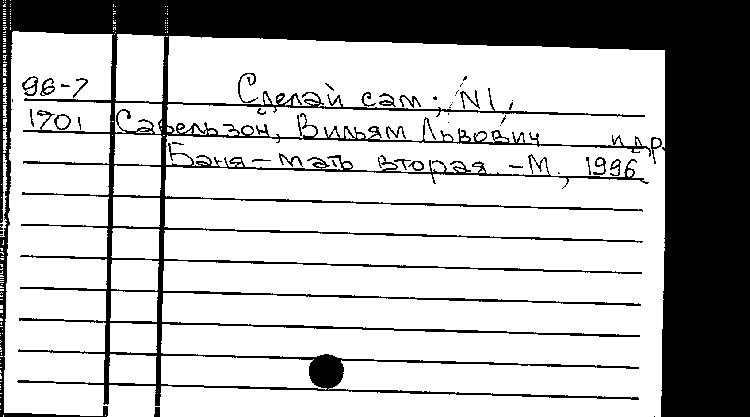 96-7 Сделай сам; N1,
1701 Савельзон, Вильям Львович и др.
Баня - мать вторая. - М., 1996